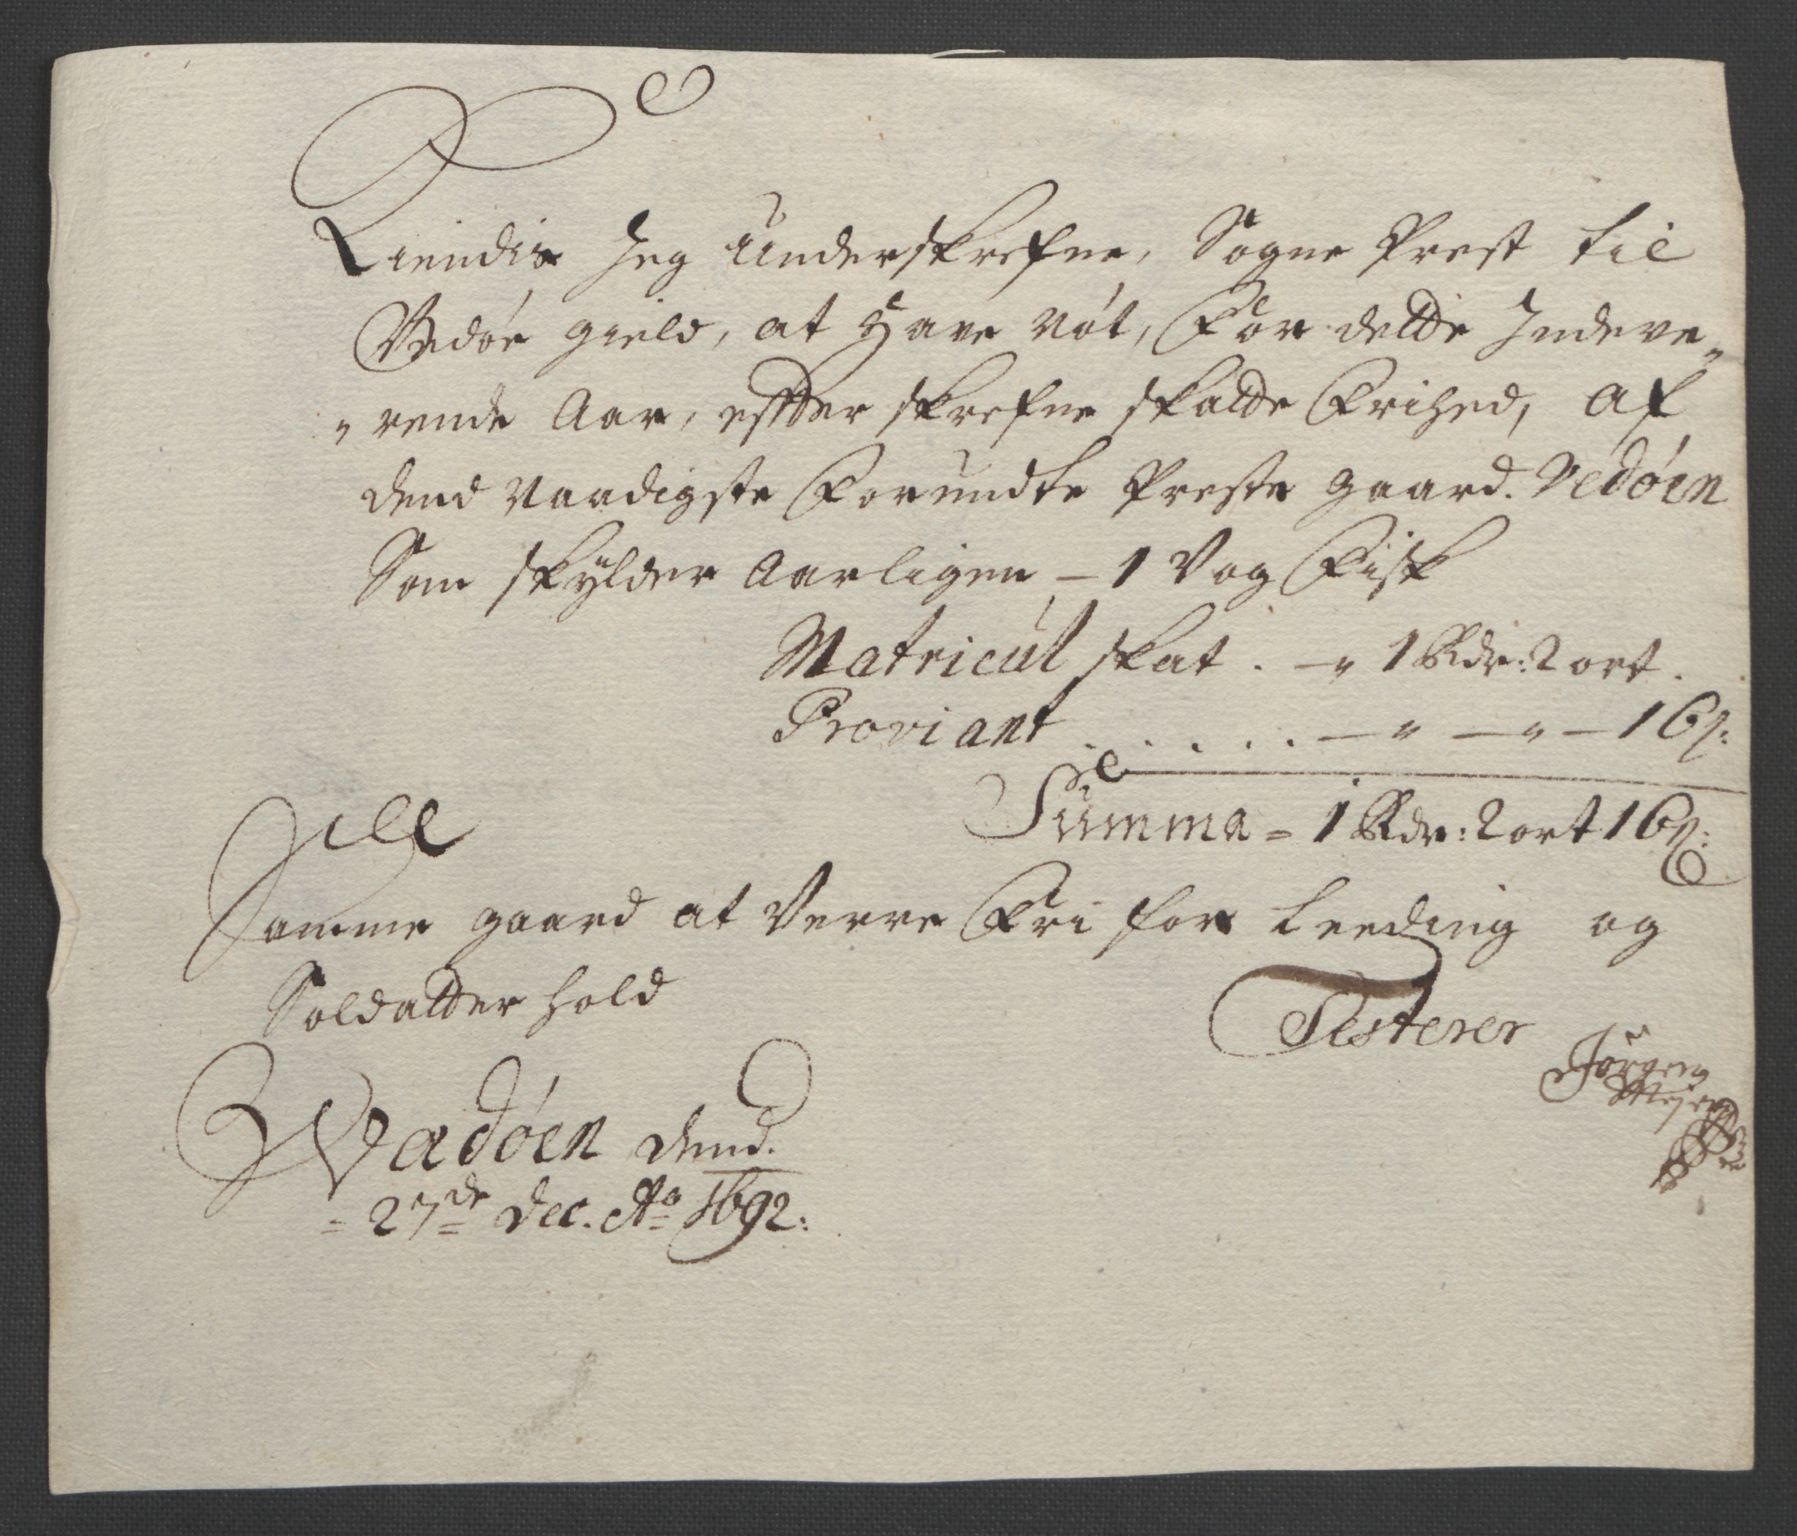 Kiendis Jeg underskrefne, Sogne Prest til
Vedøe gield, at Have nøt, For dette Indeve„
„rende Aar, effter skrefne skatte Frihed, Af
dend naadigste Forundte Preste gaard. Vedøen
Som skylder Aarligen – 1 Vog Fisk
Matricul skat . – „ 1 Rdr: 2 ort .
Proviant . . . . . – „ – „ – 16 s:
Summa = 1 Rdr: 2 ort 16 s:
Ill
Samme gaard at Verre Fri for Leeding og
Soldatter hold
Testerer
Jørgen
Wadøen dend.
= 27de Dec. Ao 1692: